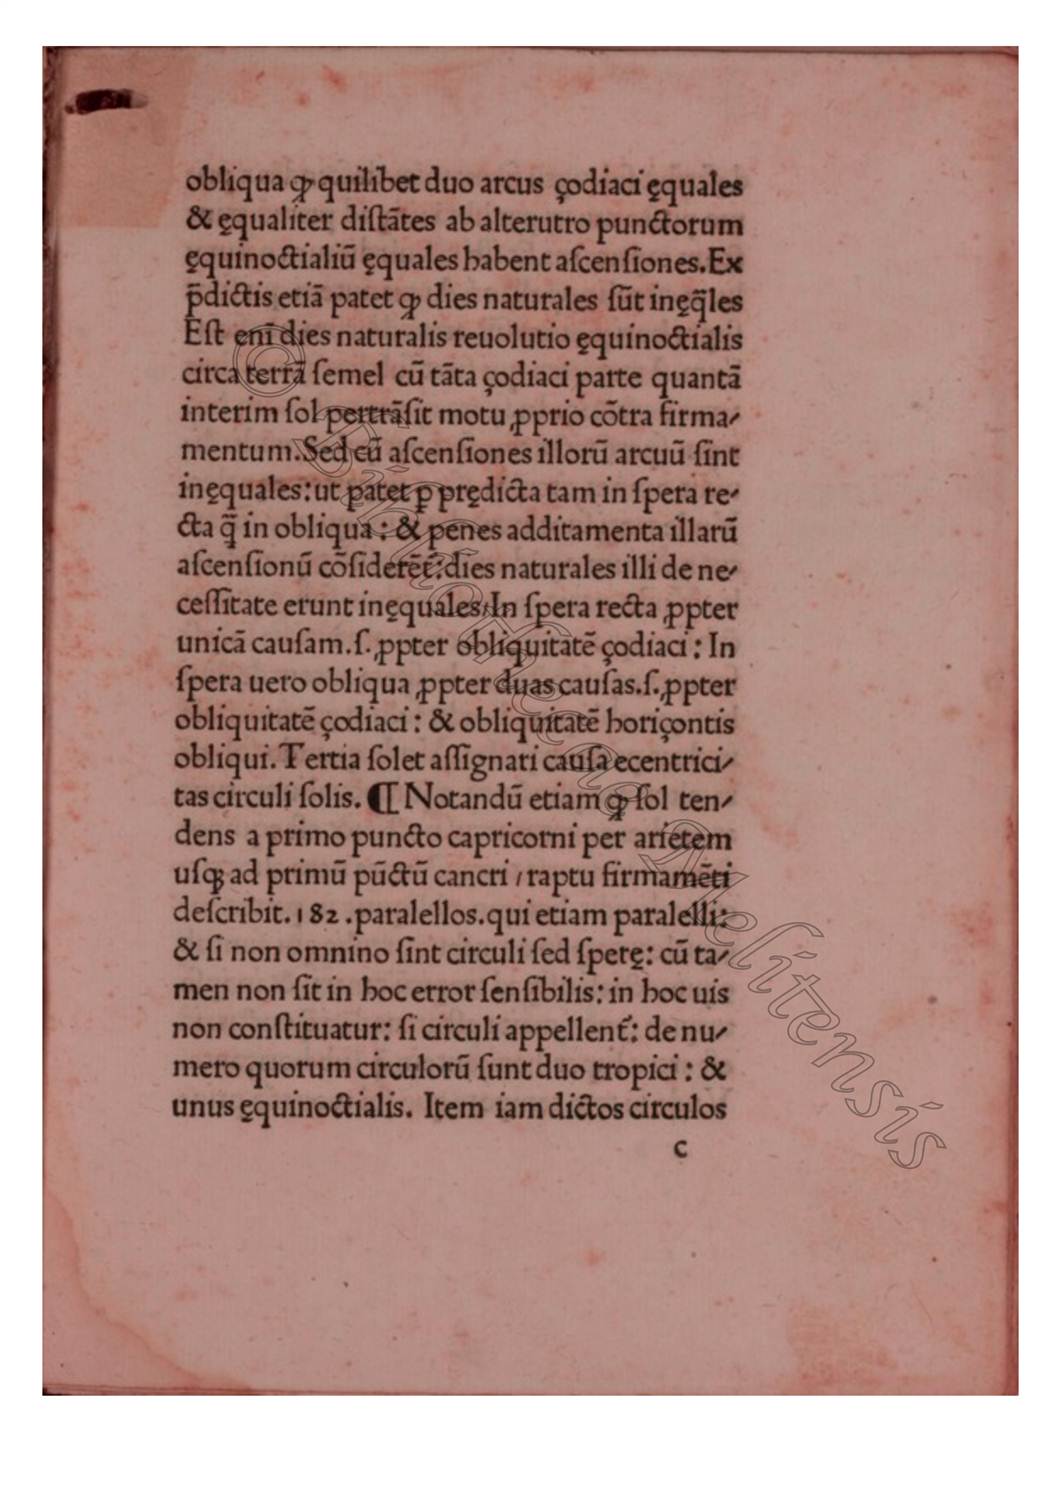 obliqua ꝙ quilibet duo arcus çodiaci ęquales
& ęqualiter diſtātes ab alterutro punctorum
ęquinoctialiū ęquales habent aſcenſiones.Ex
p̄dictis etiā patet ꝙ dies naturales ſūt inęq̄les
Eſt eni dies naturalis reuolutio ęquinoctialis
circa terrā ſemel cū tāta çodiaci parte quantā
interim ſol pertrāſit motu ꝓprio cōtra firma⸗
mentum.Sed cū aſcenſiones illorū arcuū ſint
inęquales:ut patet ꝑ prędicta tam in ſpera re⸗
cta q̄ in obliqua : & penes additamenta illarū
aſcenſionū cōſiderēt᷑:dies naturales illi de ne⸗
ceſſitate erunt inęquales/In ſpera recta ꝓpter
unicā cauſam.ſ.ꝓpter obliquitatē çodiaci : In
ſpera uero obliqua ꝓpter duas cauſas.ſ.ꝓpter
obliquitatē çodiaci : & obliquitatē horiçontis
obliqui. Tertia ſolet aſſignari cauſa ecentrici⸗
tas circuli ſolis. ¶ Notandū etiam ꝙ ſol ten⸗
dens a primo puncto capricorni per arietem
uſqꝫ ad primū pūctū cancri / raptu firmamēti
deſcribit.182.paralellos.qui etiam paralelli:
& ſi non omnino ſint circuli ſed ſperę: cū ta⸗
men non ſit in hoc error ſenſibilis: in hoc uis
non conſtituatur: ſi circuli appellent᷑: de nu⸗
mero quorum circulorū ſunt duo tropici : &
unus ęquinoctialis. Item iam dictos circulos
c
© Bibliotheca Melitensis